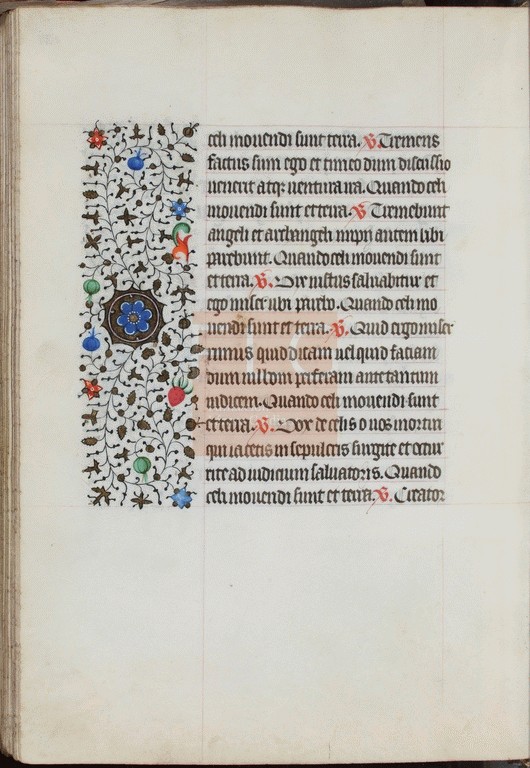 celi mouendi sunt terra. V. Tremens
factus sum ego et timeo dum discussio
uenerit atqz uentura ira. Quando celi
mouendi sunt et terra. V. Tremebunt
angeli et archangeli impii autem ubi
parebunt. Quando celi mouendi sunt
et terra. V. Vix iustus saluabitur et
ego miser ubi parebo. Quando celi mo
uendi sunt et terra. V. Quid ergo miser
rimus quid dicam uel quid faciam
dum nil boni perferam ante tantum
iudicem. Quando celi mouendi sunt
et terra. V. Vox de celis o uos mortui
qui iacetis in sepulcris surgite et occur
rite ad iudicium saluatoris. Quando
celi mouendi sunt et terra. V. Creator